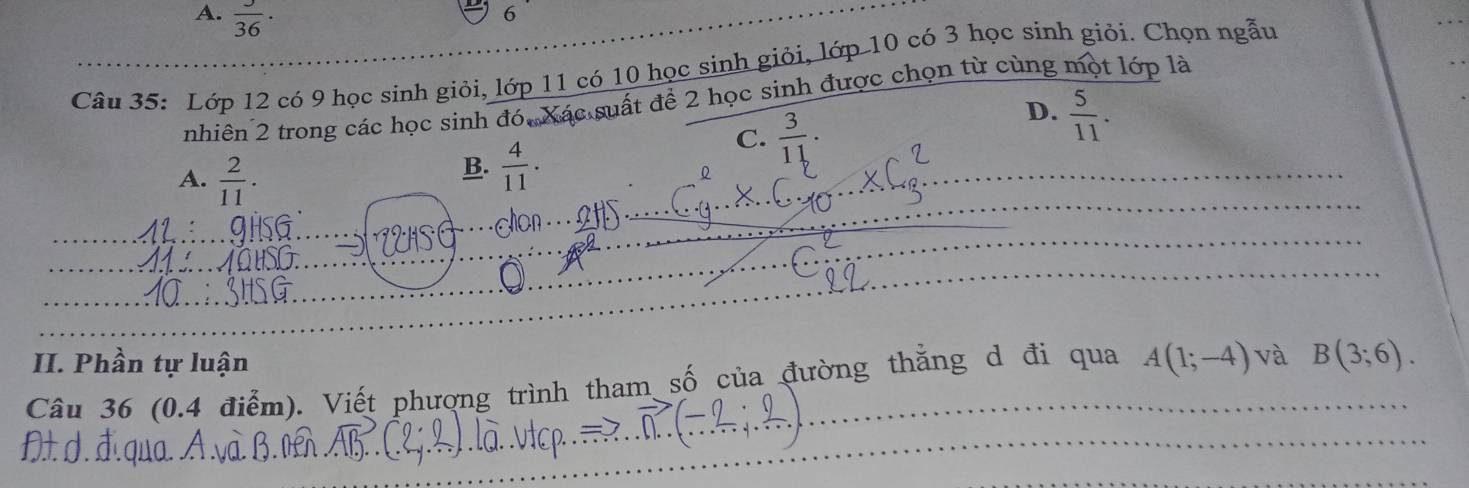 A. 36.
6
Câu 35: Lớp 12 có 9 học sinh giỏi, lớp 11 có 10 học sinh giỏi, lớp 10 có 3 học sinh giỏi. Chọn ngẫu
nhiên 2 trong các học sinh đó. Xác suất để 2 học sinh được chọn từ cùng một lớp là
A. 2/11. B. 4/11. C. 3/11. D. 5/11.
12 : 9HSG
11 : 10HSG
10 : 3HSG
=> 22HSG chọn 2HS C²₉ x C²₁₀ x C²₃
C²₂₂
II. Phần tự luận
Câu 36 (0.4 điểm). Viết phương trình tham số của đường thẳng d đi qua A(1;−4) và B(3;6).
Đt d đi qua A và B nên AB (2;2) là vtcp => n (-2;2)